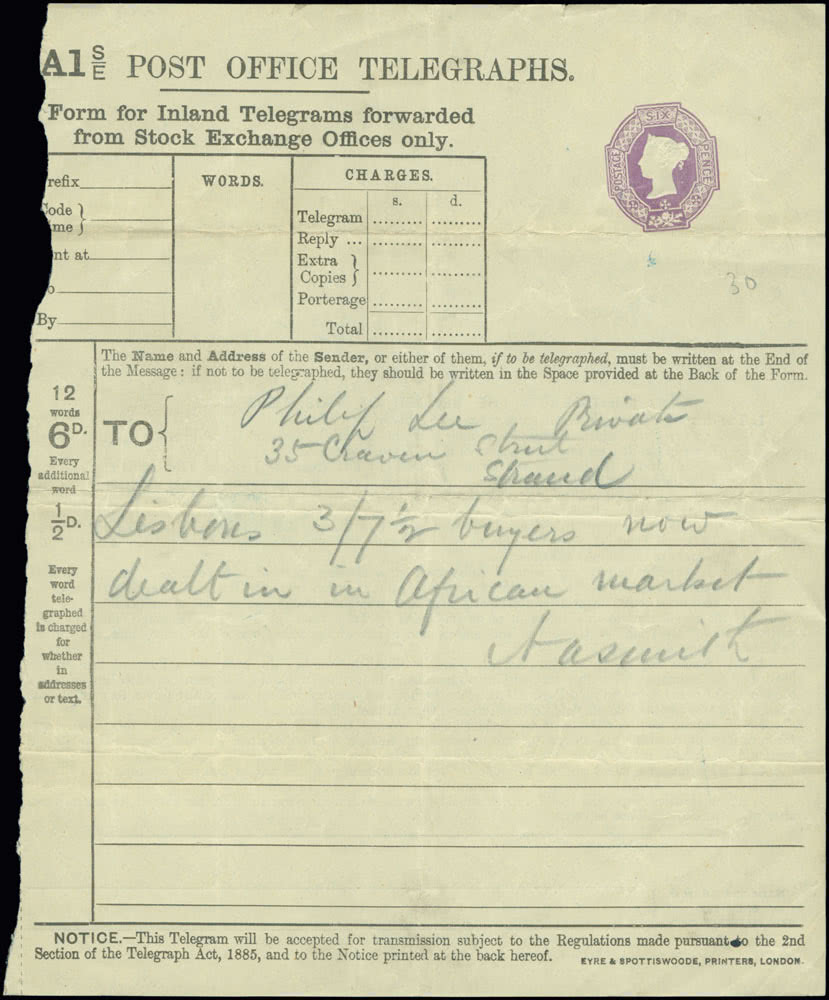 A1 S/E POST OFFICE TELEGRAPHS.
Form for Inland Telegrams forwarded
from Stock Exchange Offices only.
SIX PENCE POSTAGE
refix
ode
me
nt at
o
By
WORDS.
CHARGES.
s. d.
Telegram
Reply ...
Extra
Copies
Porterage
Total
30
The Name and Address of the Sender, or either of them, if to be telegraphed, must be written at the End of
the Message: if not to be telegraphed, they should be written in the Space provided at the Back of the Form.
12
words
6D.
Every
additional
word
½D.
Every
word
tele-
graphed
is charged
for
whether
in
addresses
or text.
TO
Philip Lee Private
35 Craven Street
Strand
Lisbons 3/7½ buyers now
dealt in in African market
Nasmith
NOTICE.—This Telegram will be accepted for transmission subject to the Regulations made pursuant to the 2nd
Section of the Telegraph Act, 1885, and to the Notice printed at the back hereof.
EYRE & SPOTTISWOODE, PRINTERS, LONDON.